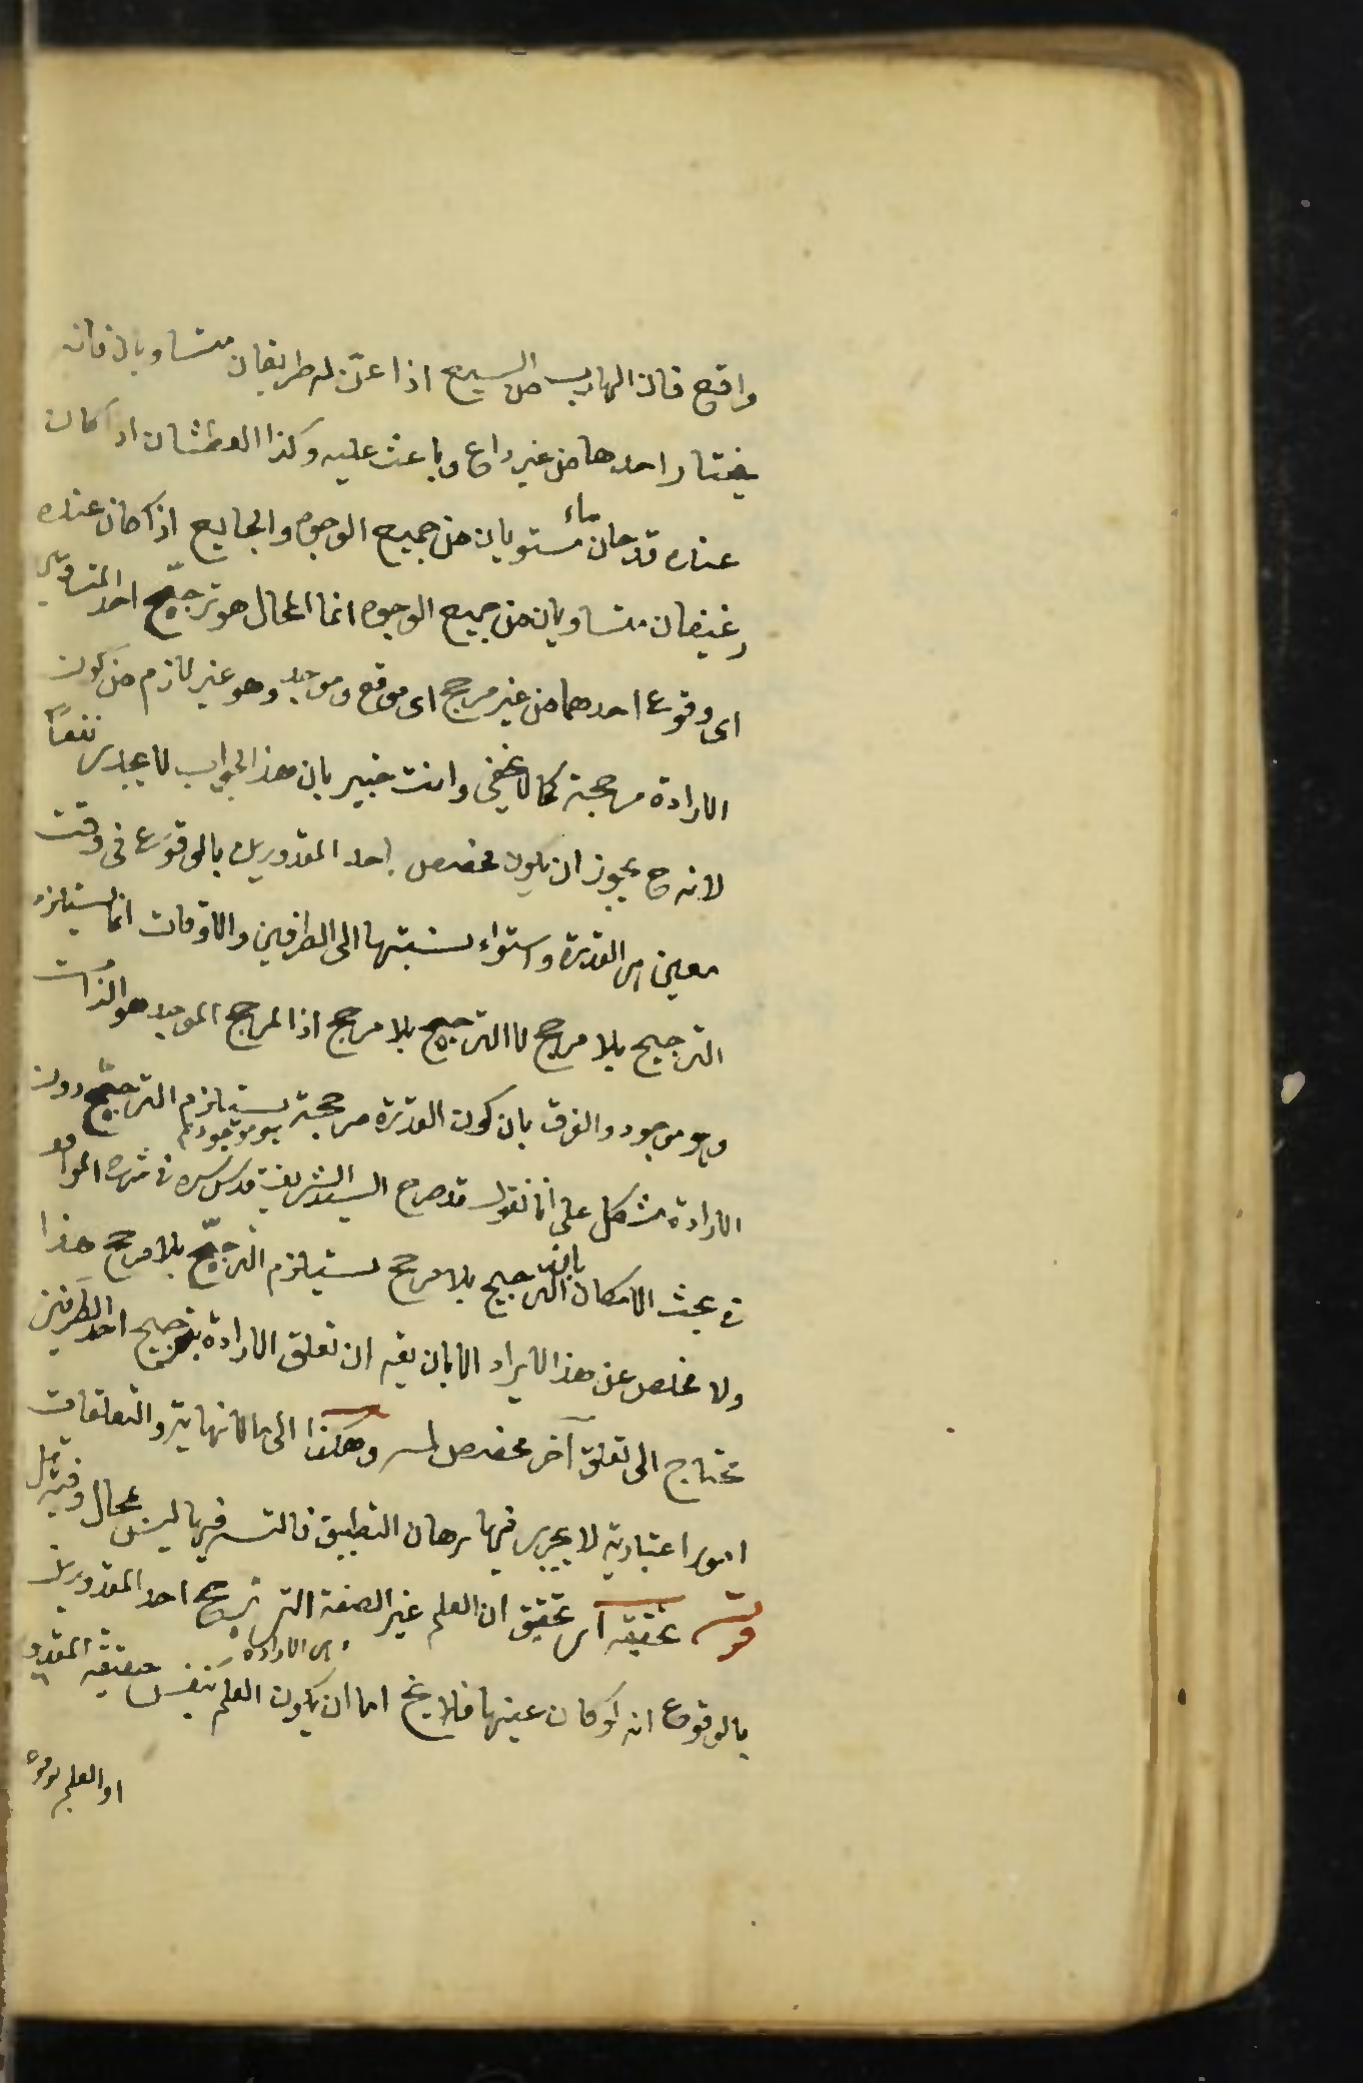 واقع فان الهارب من السبع اذا عنّ له طريقان متساويان فانه
يختار احدهما من غير داع وباعث عليه وكذا العطشان اذا كان
عنده قدحان ماء مستويان من جميع الوجوه والجايع اذا كان عنده
رغيفان متساويان من جميع الوجوه انما المحال هو ترجّح احد المتساويين
اى وقوع احدهما من غير مرجح اى موقع وموجد وهو غير لازم من كون
الارادة مرجحة كما لا يخفى وانت خبير بان هذا الجواب لا يجدى نفعاً
لانه ح يجوز ان يكون مخصص احد المقدورين بالوقوع فى وقت
معين هى القدرة واستواء نسبتها الى الطرفين والاوقات انما يستلزم
الترجيح بلا مرجح لا الترجّح بلا مرجح اذا المرجح الموجد هو الذات
وهو موجود والفرق بان كون القدرة مرجحة يستلزم الترجّح دون
الارادة مشكل على انا نقول قد صرح السيد الشريف قدس سره فى شرح المواقف
فى بحث الامكان بان الترجيح بلا مرجح يستلزم الترجّح بلا مرجح هذا
ولا مخلص عن هذا الايراد الا بان يقه ان تعلق الارادة بترجيح احد الطرفين
يحتاج الى تعلق آخر مخصص له وهكذا الى ما لا نهاية والتعلقات
امور اعتبارية لا يجرى فيها برهان التطبيق فالتسه فيها ليس بمحال وفيه تأمل
قوله تحقيقه اى تحقيق ان العلم غير الصفة التى ترجح احد المقدورين
اى الارادة
بالوقوع انه لو كان عينها فلا يخ اما ان يكون العلم بنفس حقيقة المقدور
او العلم بوقوعه